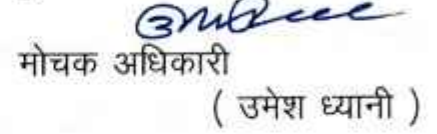 मोचक अधिकारी
( उमेश ध्यानी )